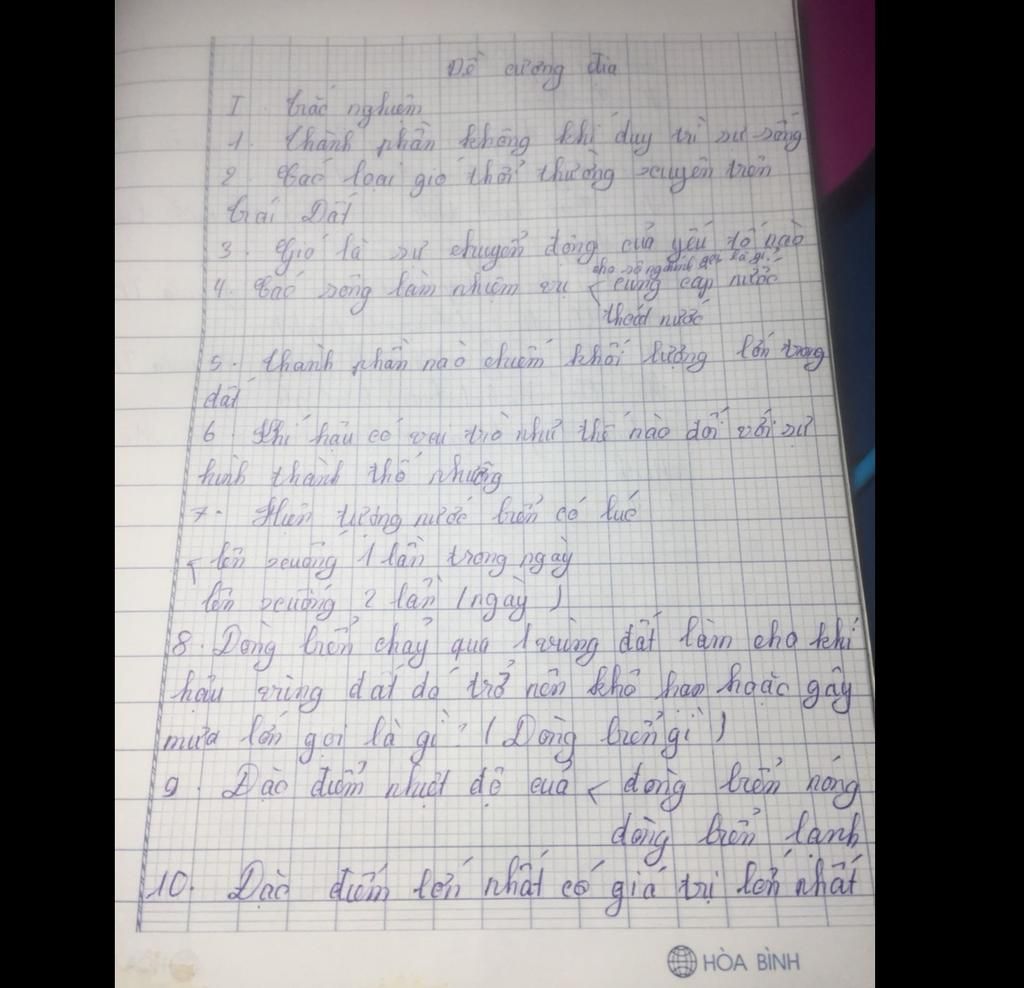 Đề cương địa
I. trắc nghiệm
1. thành phần không khí duy trì sự sống
2. Các loại gió thổi thường xuyên trên
trái Đất
3. Gió là sự chuyển động của yếu tố nào
cho sông chính gọi là gì?
4. Các sông làm nhiệm vụ < cung cấp nước
thoát nước
5. thành phần nào chiếm khối lượng lớn trong
đất
6. Khí hậu có vai trò như thế nào đối với sự
hình thành thổ nhưỡng
7. Hiện tượng nước biển có lúc
< lên xuống 1 lần trong ngày
lên xuống 2 lần (ngày)
8. Dòng biển chảy qua 1 vùng đất làm cho khí
hậu vùng đất đó trở nên khô hạn hoặc gây
mưa lớn gọi là gì? (Dòng biển gì)
9. Đặc điểm nhiệt độ của < dòng biển nóng
dòng biển lạnh
10. Đặc điểm lớn nhất có giá trị lớn nhất
HÒA BÌNH